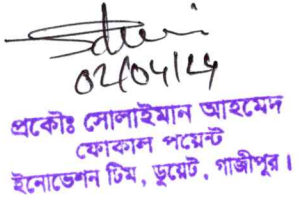 02/04/24
প্রকৌঃ সোলাইমান আহমেদ
ফোকাল পয়েন্ট
ইনোভেশন টিম, ডুয়েট, গাজীপুর।